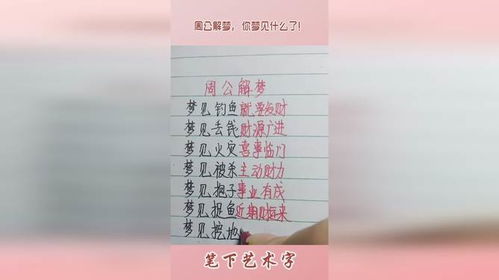 周公解梦，你梦见什么了!
周公解梦
梦见钓鱼就等发财
梦见丢钱财源广进
梦见火灾喜事临门
梦见被杀主动财力
梦见抱子事业有成
梦见捉鱼近期财运来
梦见挖地
笔下艺术字